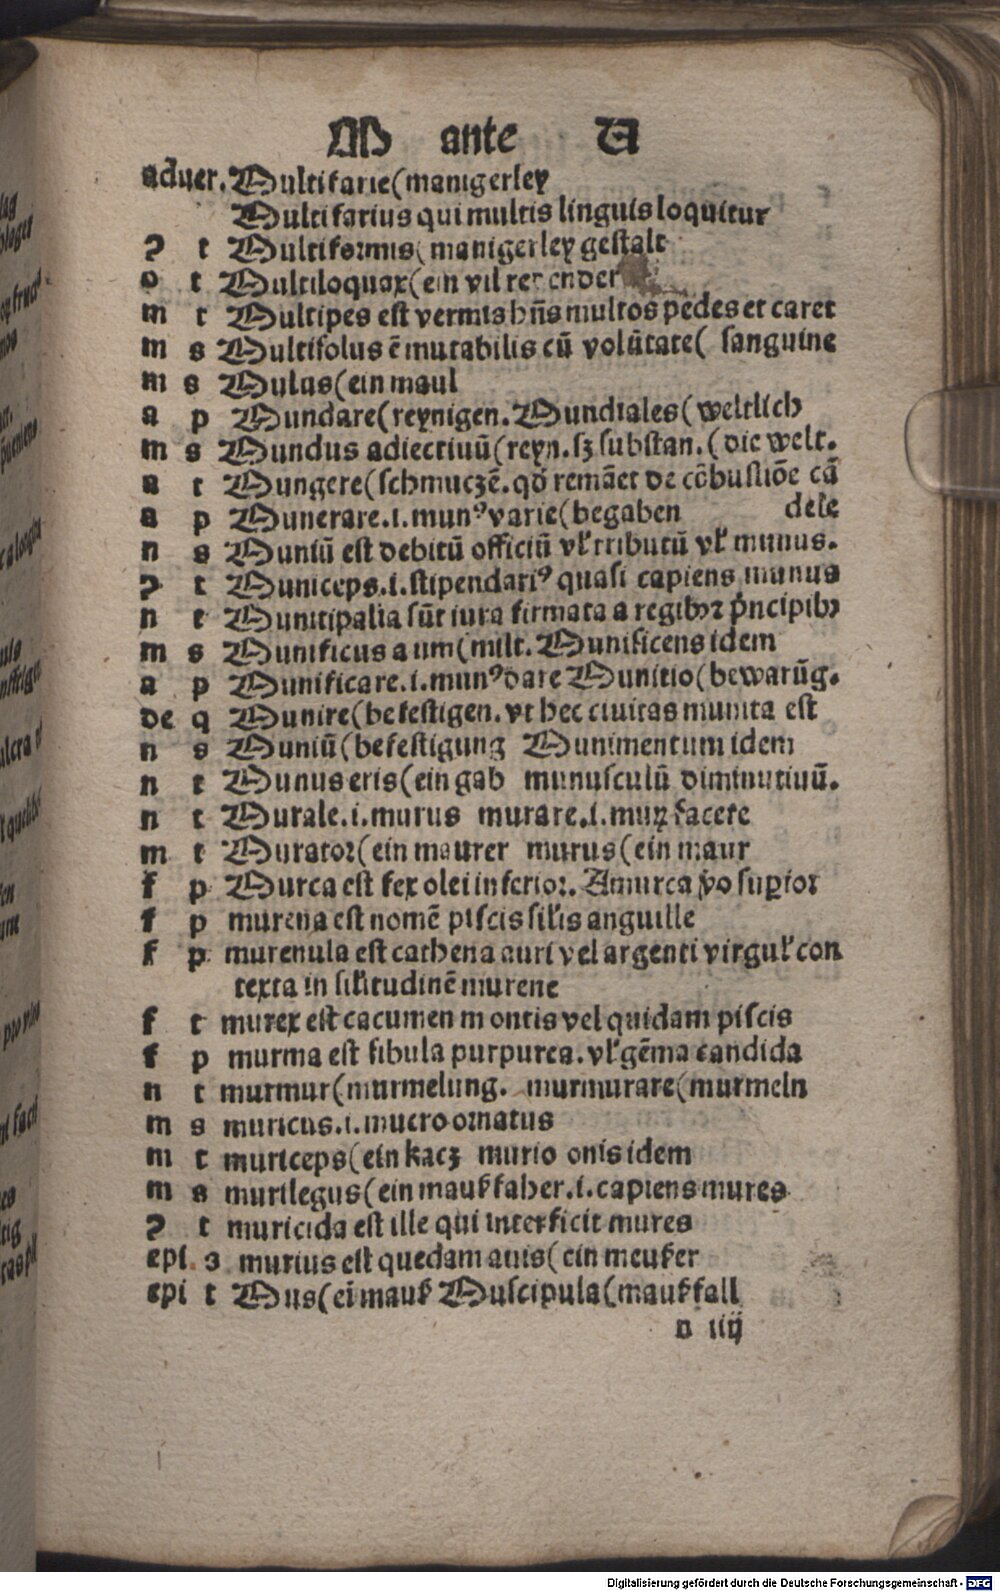 M ante U
aduer. Multifarie(manigerley
Multifarius qui multis linguis loquitur
ꝰ t Multiformis( manigerley gestalt
o t Multiloquax(ein vil redender
m t Multipes est vermis hn̄s multos pedes et caret
m s Multisolus ē mutabilis cū volūtate( sanguine
m s Mulus(ein maul
a p Mundare(reynigen. Mundiales(weltlich
m s Mundus adiectiuū(reyn. sꝫ substan.(die welt.
a t Mungere(schmuczē. qd̄ remāet de cōbustiōe cā
a p Munerare.i.munꝰ varie(begaben dele
n s Muniū est debitū officiū vł tributū vł munus.
ꝰ t Municeps.i.stipendariꝰ quasi capiens munus
n t Munitipalia sūt iura firmata a regibꝫ ⁊ p̄ncipibꝫ
m s Munificus a um(milt. Munificens idem
a p Munificare.i.munꝰ dare Munitio(bewarūg.
de q Munire(befestigen. vt hec ciuitas munita est
n s Muniū(befestigung Munimentum idem
n t Munus eris(ein gab munusculū diminutiuū.
n t Murale.i.murus murare.i.muꝝ facere
m t Murator(ein maurer murus(ein maur
f p Murca est fex olei inferior. Amurca v̄o suꝑior
f p murena est nomē piscis silis anguille
f p murenula est cathena auri vel argenti virguł con
texta in silitudinē murene
f t murex est cacumen montis vel quidam piscis
f p murma est fibula purpurea. vł gēma candida
n t murmur(murmelung. murmurare(murmeln
m s muricus.i.mucro ornatus
m t muriceps(ein kacz murio onis idem
m s murilegus(ein maußfaher.i.capiens mures
ꝰ t muricida est ille qui interficit mures
epi. 3 murius est quedam auis(ein meußer
epi t Mus(eī mauß Muscipula(maußfall
n iiij
Digitalisierung gefördert durch die Deutsche Forschungsgemeinschaft - DFG